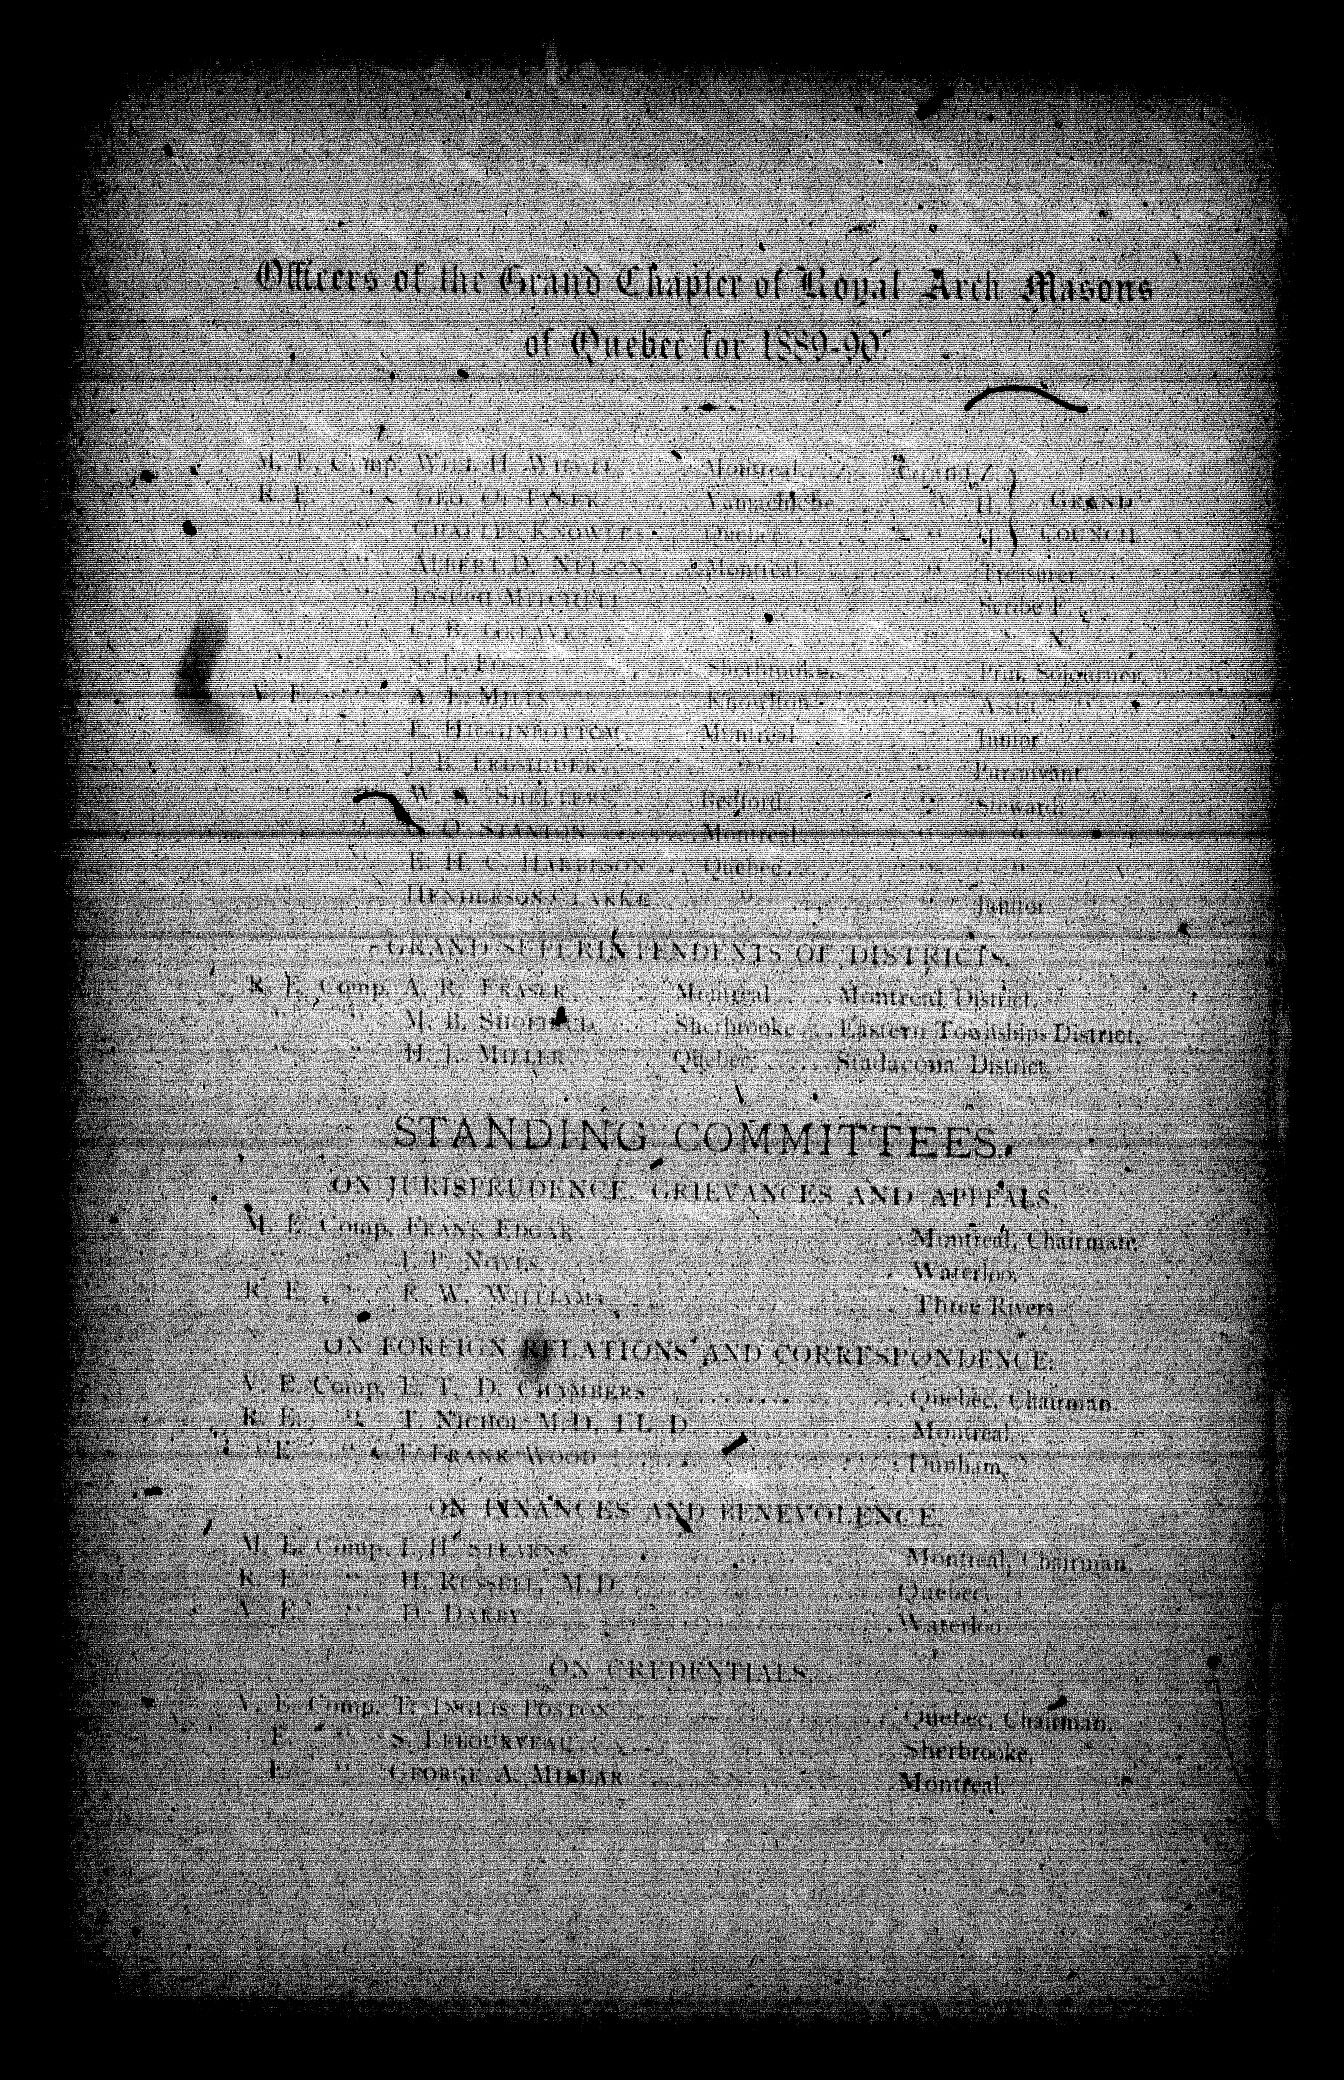 Officers of the Grand Chapter of Royal Arch Masons
of Quebec for 1889-90.
M. E. Comp. Will H. Whyte Montreal Grand Z
R. E. " Geo. O. Tyler Yamachiche " H. GRAND
" " Charles Knowles Quebec " J. COUNCIL
" " Albert D. Nelson Montreal " Treasurer
Joseph Mitchell " Scribe E.
" " "
Sherbrooke " Prin. Sojourner,
V. E. " A. E. Mills Knowlton " Assist. "
E. Higginbottom Montreal Junior
" Pursuivant
Shelters Bedford " Stewards
Stanton Montreal " "
E. H. C. Harrison Quebec " "
Henderson Clarke " Janitor
GRAND SUPERINTENDENTS OF DISTRICTS.
R. E. Comp. A. R. Fraser Montreal Montreal District.
" " M. B. Sherbrooke Eastern Townships District.
" " H. J. Miller Quebec Stadacona District.
STANDING COMMITTEES.
ON JURISPRUDENCE, GRIEVANCES AND APPEALS.
M. E. Comp. Frank Edgar Montreal, Chairman.
" " J. P. Noyes Waterloo.
R. E. " R. W. Williams Three Rivers
ON FOREIGN RELATIONS AND CORRESPONDENCE.
V. E. Comp. E. T. D. Chambers Quebec, Chairman.
R. E. " T. Nichol M.D. LL. D. Montreal.
E. " Frank Wood Dunham.
ON FINANCES AND BENEVOLENCE.
M. E. Comp. I. H. Stearns Montreal, Chairman.
R. E. " H. Russell, M.D. Quebec.
V. E. " D. Darby Waterloo
ON CREDENTIALS.
V. E. Comp. T. Inglis Poston Quebec, Chairman.
E. " S. Sherbrooke.
E. " George A. Millar Montreal.